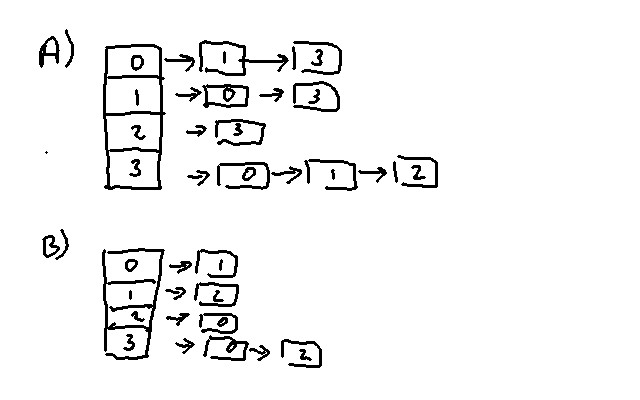 A)
0 → 1 → 3
1 → 0 → 3
2 → 3
3 → 0 → 1 → 2
B)
0 → 1
1 → 2
2 → 0
3 → 0 → 2